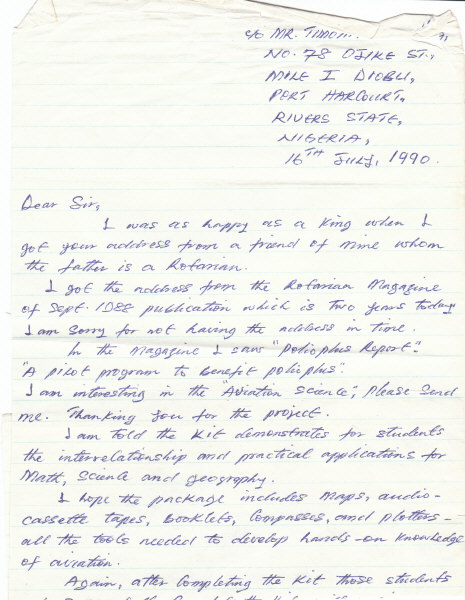 c/o MR. TIMON.
NO. 78 OJIKE ST.,
MILE I DIOBU,
PORT HARCOURT,
RIVERS STATE,
NIGERIA,
16TH JULY, 1990.
Dear Sir,
I was as happy as a King when I
got your address from a friend of mine whom
the father is a Rotarian.
I got the address from the Rotarian Magazine
of Sept. 1988 publication which is two years today
I am sorry for not having the address in time.
In the Magazine I saw "polioplus Report".
"A pilot program to benefit polioplus".
I am interesting in the "Aviation Science", please send
me. Thanking you for the project.
I am told the Kit demonstrates for students
the interrelationship and practical applications for
Math, Science and geography.
I hope the package includes Maps, audio-
cassette tapes, Booklets, Compasses, and plotters -
all the tools needed to develop hands-on knowledge
of aviation.
Again, after completing the Kit those students